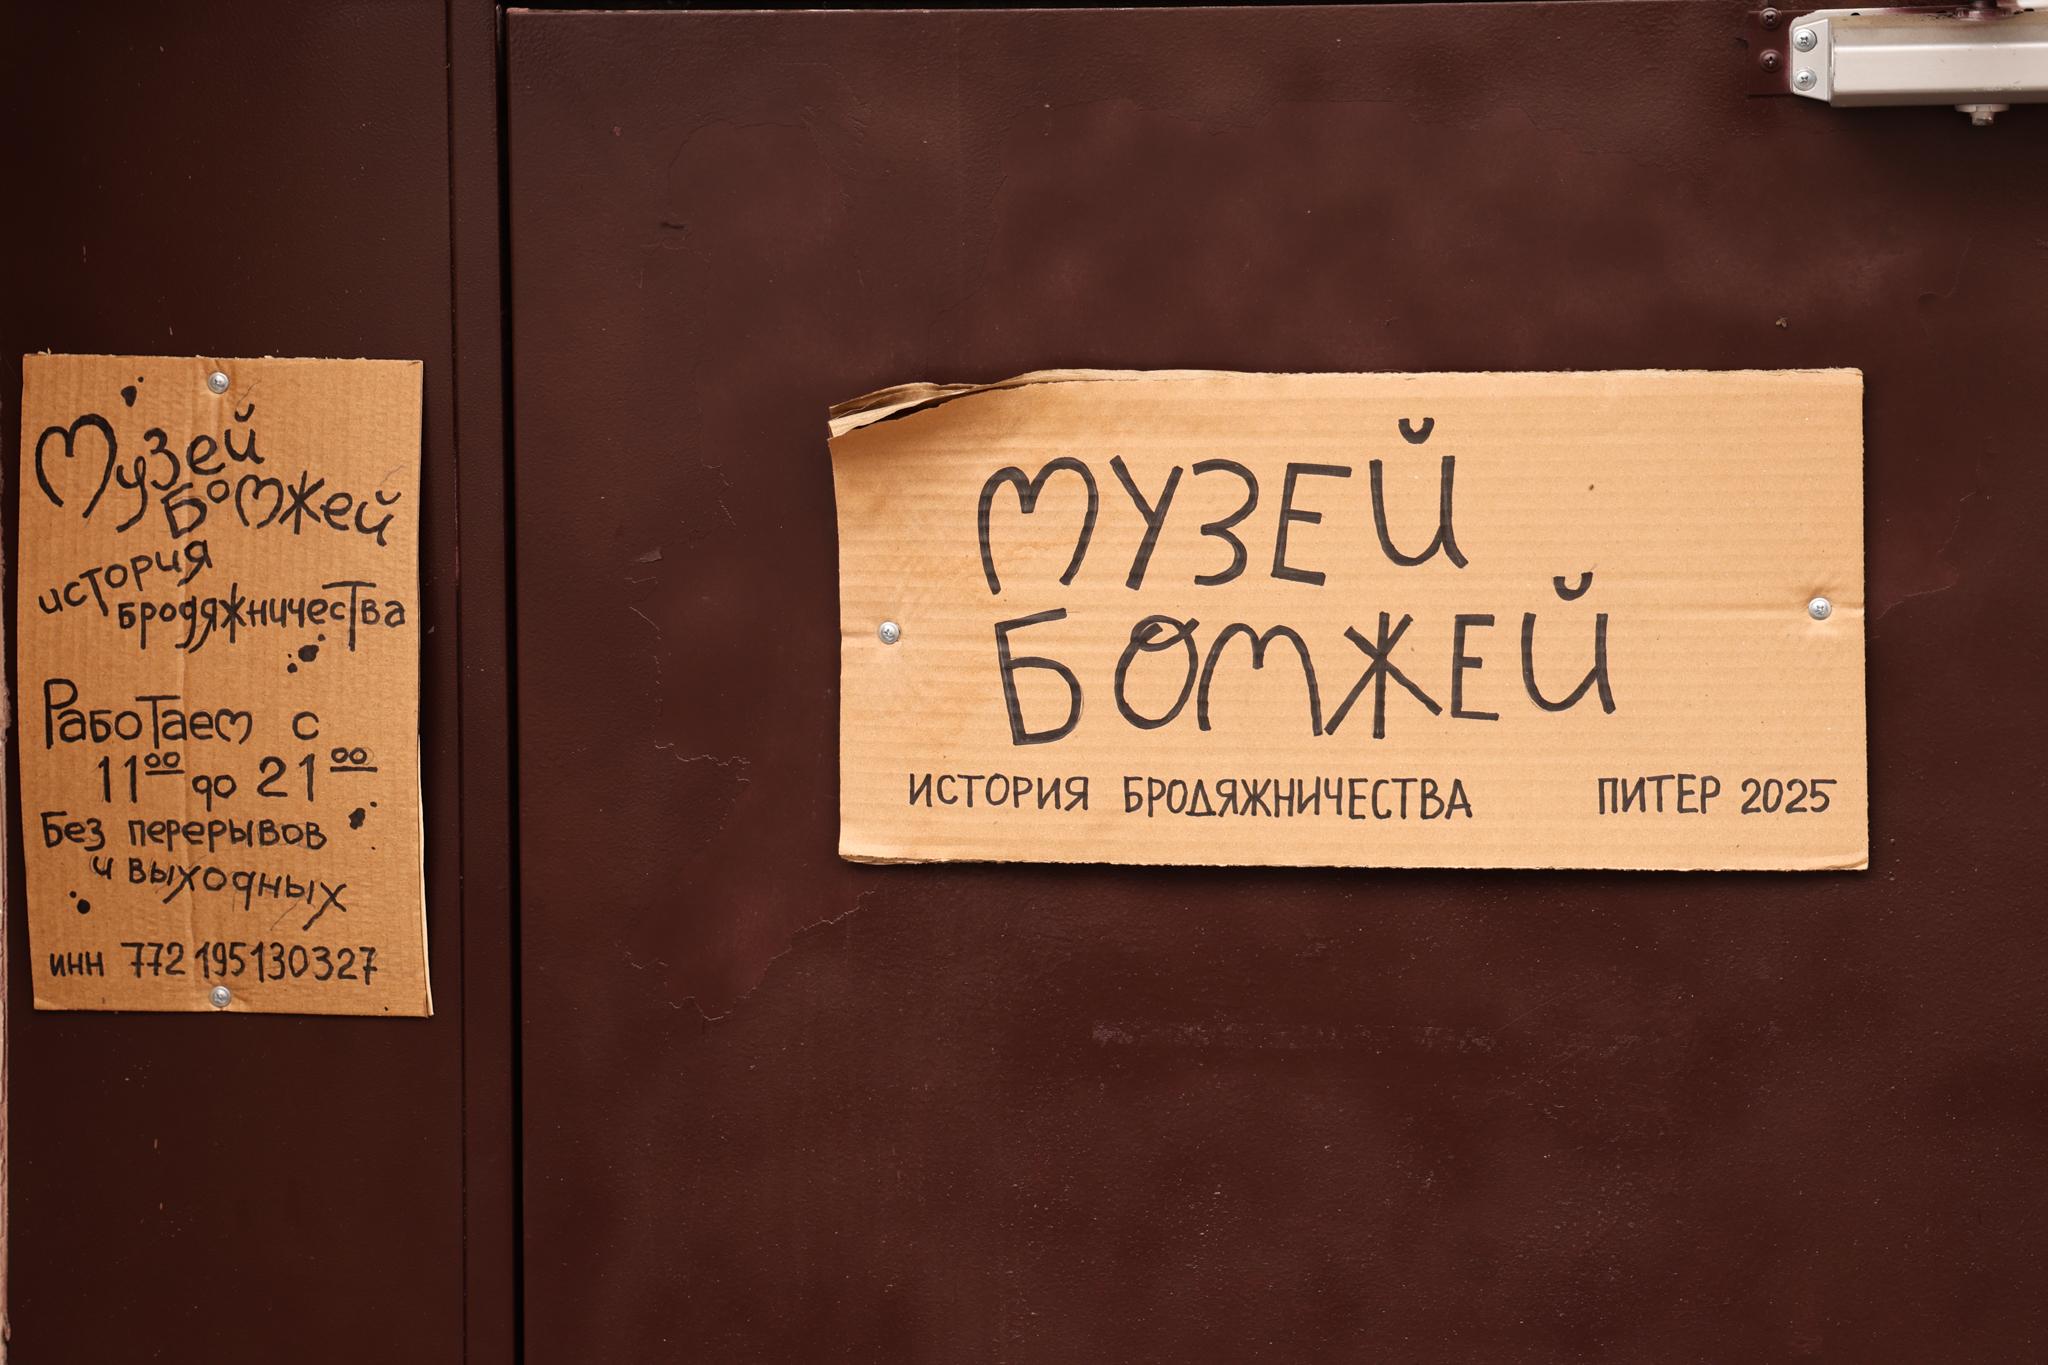 Музей
Бомжей
история
бродяжничества
Работаем с
11⁰⁰ до 21⁰⁰
Без перерывов
и выходных
ИНН 772195130327
МУЗЕЙ
БОМЖЕЙ
ИСТОРИЯ БРОДЯЖНИЧЕСТВА ПИТЕР 2025